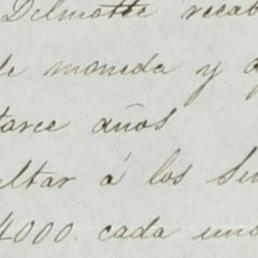 Delmotte recab
de moneda y a
tarce años
ultar á los Se
4000. cada uno